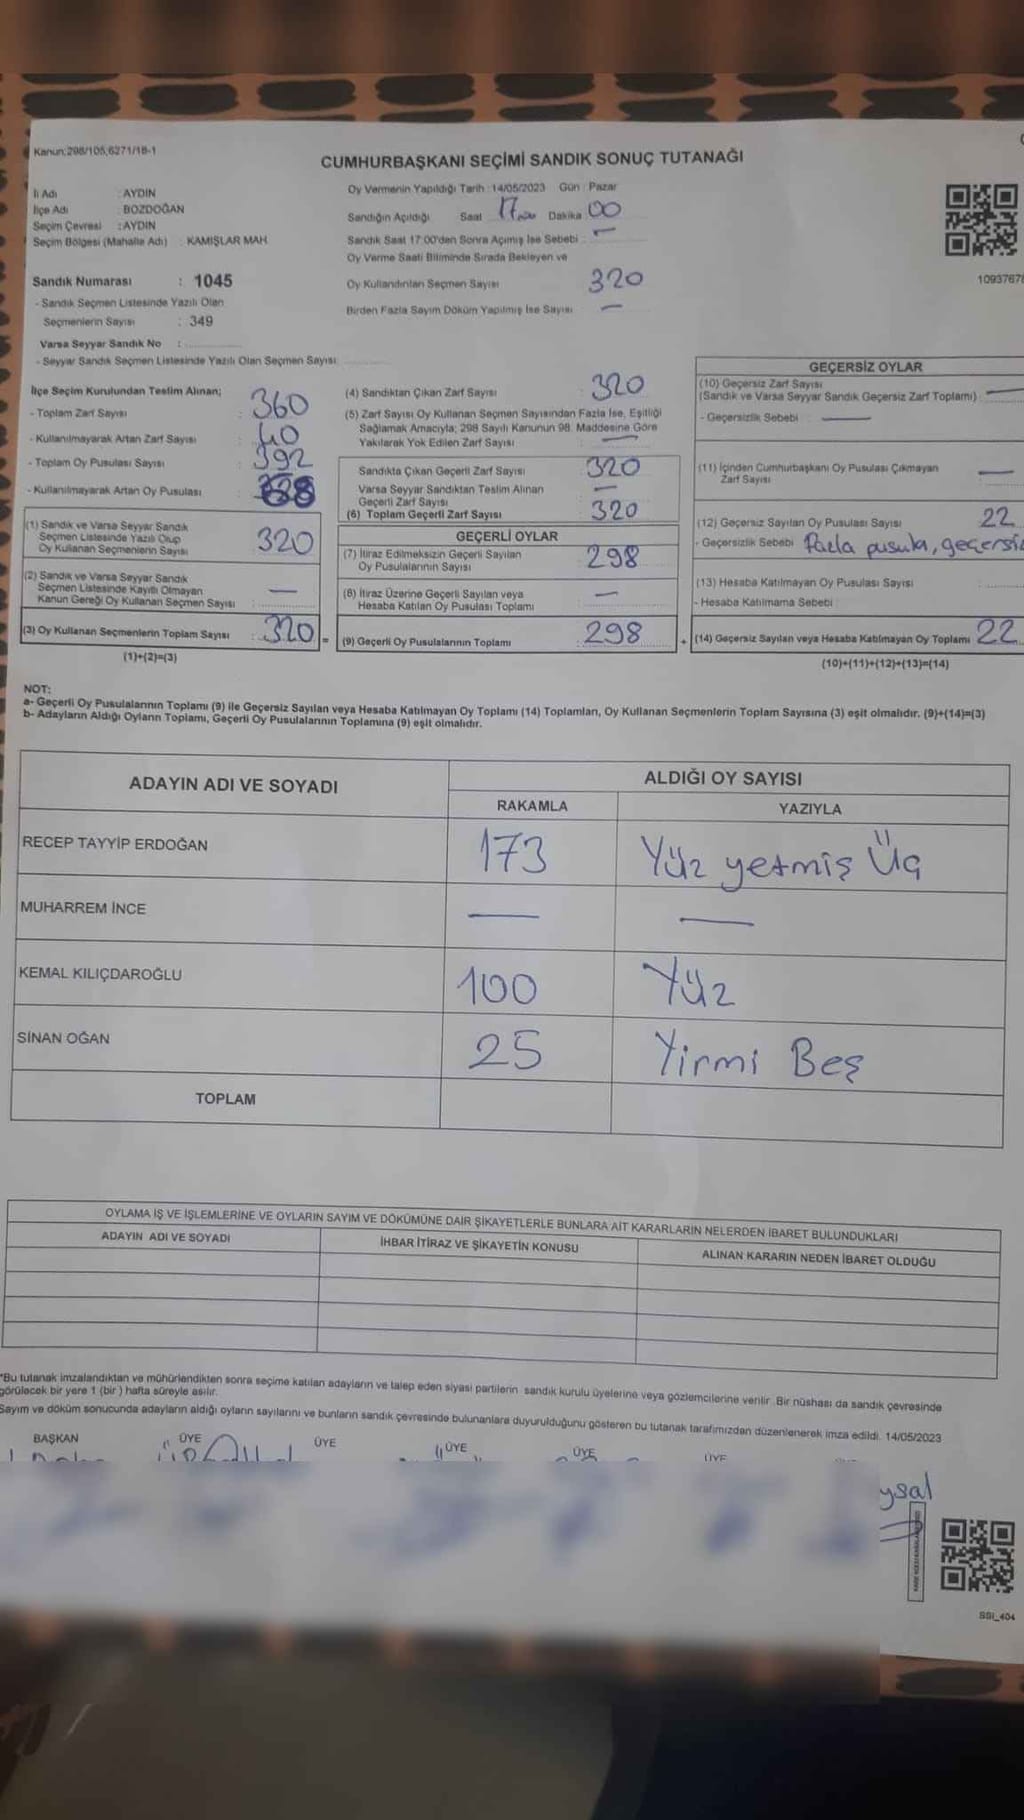 Kanun;298/105;6271/18-1
CUMHURBAŞKANI SEÇİMİ SANDIK SONUÇ TUTANAĞI
İl Adı : AYDIN
İlçe Adı : BOZDOĞAN
Seçim Çevresi : AYDIN
Seçim Bölgesi (Mahalle Adı) : KAMIŞLAR MAH.
Oy Vermenin Yapıldığı Tarih : 14/05/2023 Gün : Pazar
Sandığın Açıldığı Saat 17.00 Dakika 00
Sandık Saat 17:00'den Sonra Açımış İse Sebebi : —
Oy Verme Saati Bitiminde Sırada Bekleyen ve
Oy Kullandırılan Seçmen Sayısı 320
Birden Fazla Sayım Döküm Yapılmış İse Sayısı —
1093767
Sandık Numarası : 1045
- Sandık Seçmen Listesinde Yazılı Olan
Seçmenlerin Sayısı : 349
Varsa Seyyar Sandık No :
- Seyyar Sandık Seçmen Listesinde Yazılı Olan Seçmen Sayısı:
İlçe Seçim Kurulundan Teslim Alınan;
- Toplam Zarf Sayısı : 360
- Kullanılmayarak Artan Zarf Sayısı : 40
- Toplam Oy Pusulası Sayısı : 392
- Kullanılmayarak Artan Oy Pusulası :
(1) Sandık ve Varsa Seyyar Sandık
Seçmen Listesinde Yazılı Olup
Oy Kullanan Seçmenlerin Sayısı : 320
(2) Sandık ve Varsa Seyyar Sandık
Seçmen Listesinde Kayıtlı Olmayan
Kanun Gereği Oy Kullanan Seçmen Sayısı : —
(3) Oy Kullanan Seçmenlerin Toplam Sayısı : 320 =
(1)+(2)=(3)
(4) Sandıktan Çıkan Zarf Sayısı : 320
(5) Zarf Sayısı Oy Kullanan Seçmen Sayısından Fazla İse, Eşitliği
Sağlamak Amacıyla; 298 Sayılı Kanunun 98. Maddesine Göre
Yakılarak Yok Edilen Zarf Sayısı : —
Sandıkta Çıkan Geçerli Zarf Sayısı : 320
Varsa Seyyar Sandıktan Teslim Alınan
Geçerli Zarf Sayısı : —
(6) Toplam Geçerli Zarf Sayısı : 320
GEÇERLİ OYLAR
(7) İtiraz Edilmeksizin Geçerli Sayılan
Oy Pusulalarının Sayısı : 298
(8) İtiraz Üzerine Geçerli Sayılan veya
Hesaba Katılan Oy Pusulası Toplamı : —
(9) Geçerli Oy Pusulalarının Toplamı : 298 +
GEÇERSİZ OYLAR
(10) Geçersiz Zarf Sayısı
(Sandık ve Varsa Seyyar Sandık Geçersiz Zarf Toplamı) : —
- Geçersizlik Sebebi : —
(11) İçinden Cumhurbaşkanı Oy Pusulası Çıkmayan
Zarf Sayısı —
(12) Geçersiz Sayılan Oy Pusulası Sayısı 22
- Geçersizlik Sebebi Fazla pusula, geçersiz
(13) Hesaba Katılmayan Oy Pusulası Sayısı :
- Hesaba Katılmama Sebebi
(14) Geçersiz Sayılan veya Hesaba Katılmayan Oy Toplamı 22
(10)+(11)+(12)+(13)=(14)
NOT:
a- Geçerli Oy Pusulalarının Toplamı (9) ile Geçersiz Sayılan veya Hesaba Katılmayan Oy Toplamı (14) Toplamları, Oy Kullanan Seçmenlerin Toplam Sayısına (3) eşit olmalıdır. (9)+(14)=(3)
b- Adayların Aldığı Oyların Toplamı, Geçerli Oy Pusulalarının Toplamına (9) eşit olmalıdır.
ADAYIN ADI VE SOYADI
ALDIĞI OY SAYISI
RAKAMLA YAZIYLA
RECEP TAYYİP ERDOĞAN 173 Yüz yetmiş Üç
MUHARREM İNCE — —
KEMAL KILIÇDAROĞLU 100 Yüz
SİNAN OĞAN 25 Yirmi Beş
TOPLAM
OYLAMA İŞ VE İŞLEMLERİNE VE OYLARIN SAYIM VE DÖKÜMÜNE DAİR ŞİKAYETLERLE BUNLARA AİT KARARLARIN NELERDEN İBARET BULUNDUKLARI
ADAYIN ADI VE SOYADI İHBAR İTİRAZ VE ŞİKAYETİN KONUSU ALINAN KARARIN NEDEN İBARET OLDUĞU
*Bu tutanak imzalandıktan ve mühürlendikten sonra seçime katılan adayların ve talep eden siyasi partilerin sandık kurulu üyelerine veya gözlemcilerine verilir. Bir nüshası da sandık çevresinde
görülecek bir yere 1 (bir ) hafta süreyle asılır.
Sayım ve döküm sonucunda adayların aldığı oyların sayılarını ve bunların sandık çevresinde bulunanlara duyurulduğunu gösteren bu tutanak tarafımızdan düzenlenerek imza edildi. 14/05/2023
BAŞKAN ÜYE ÜYE ÜYE ÜYE ÜYE
ysal
SSI_404